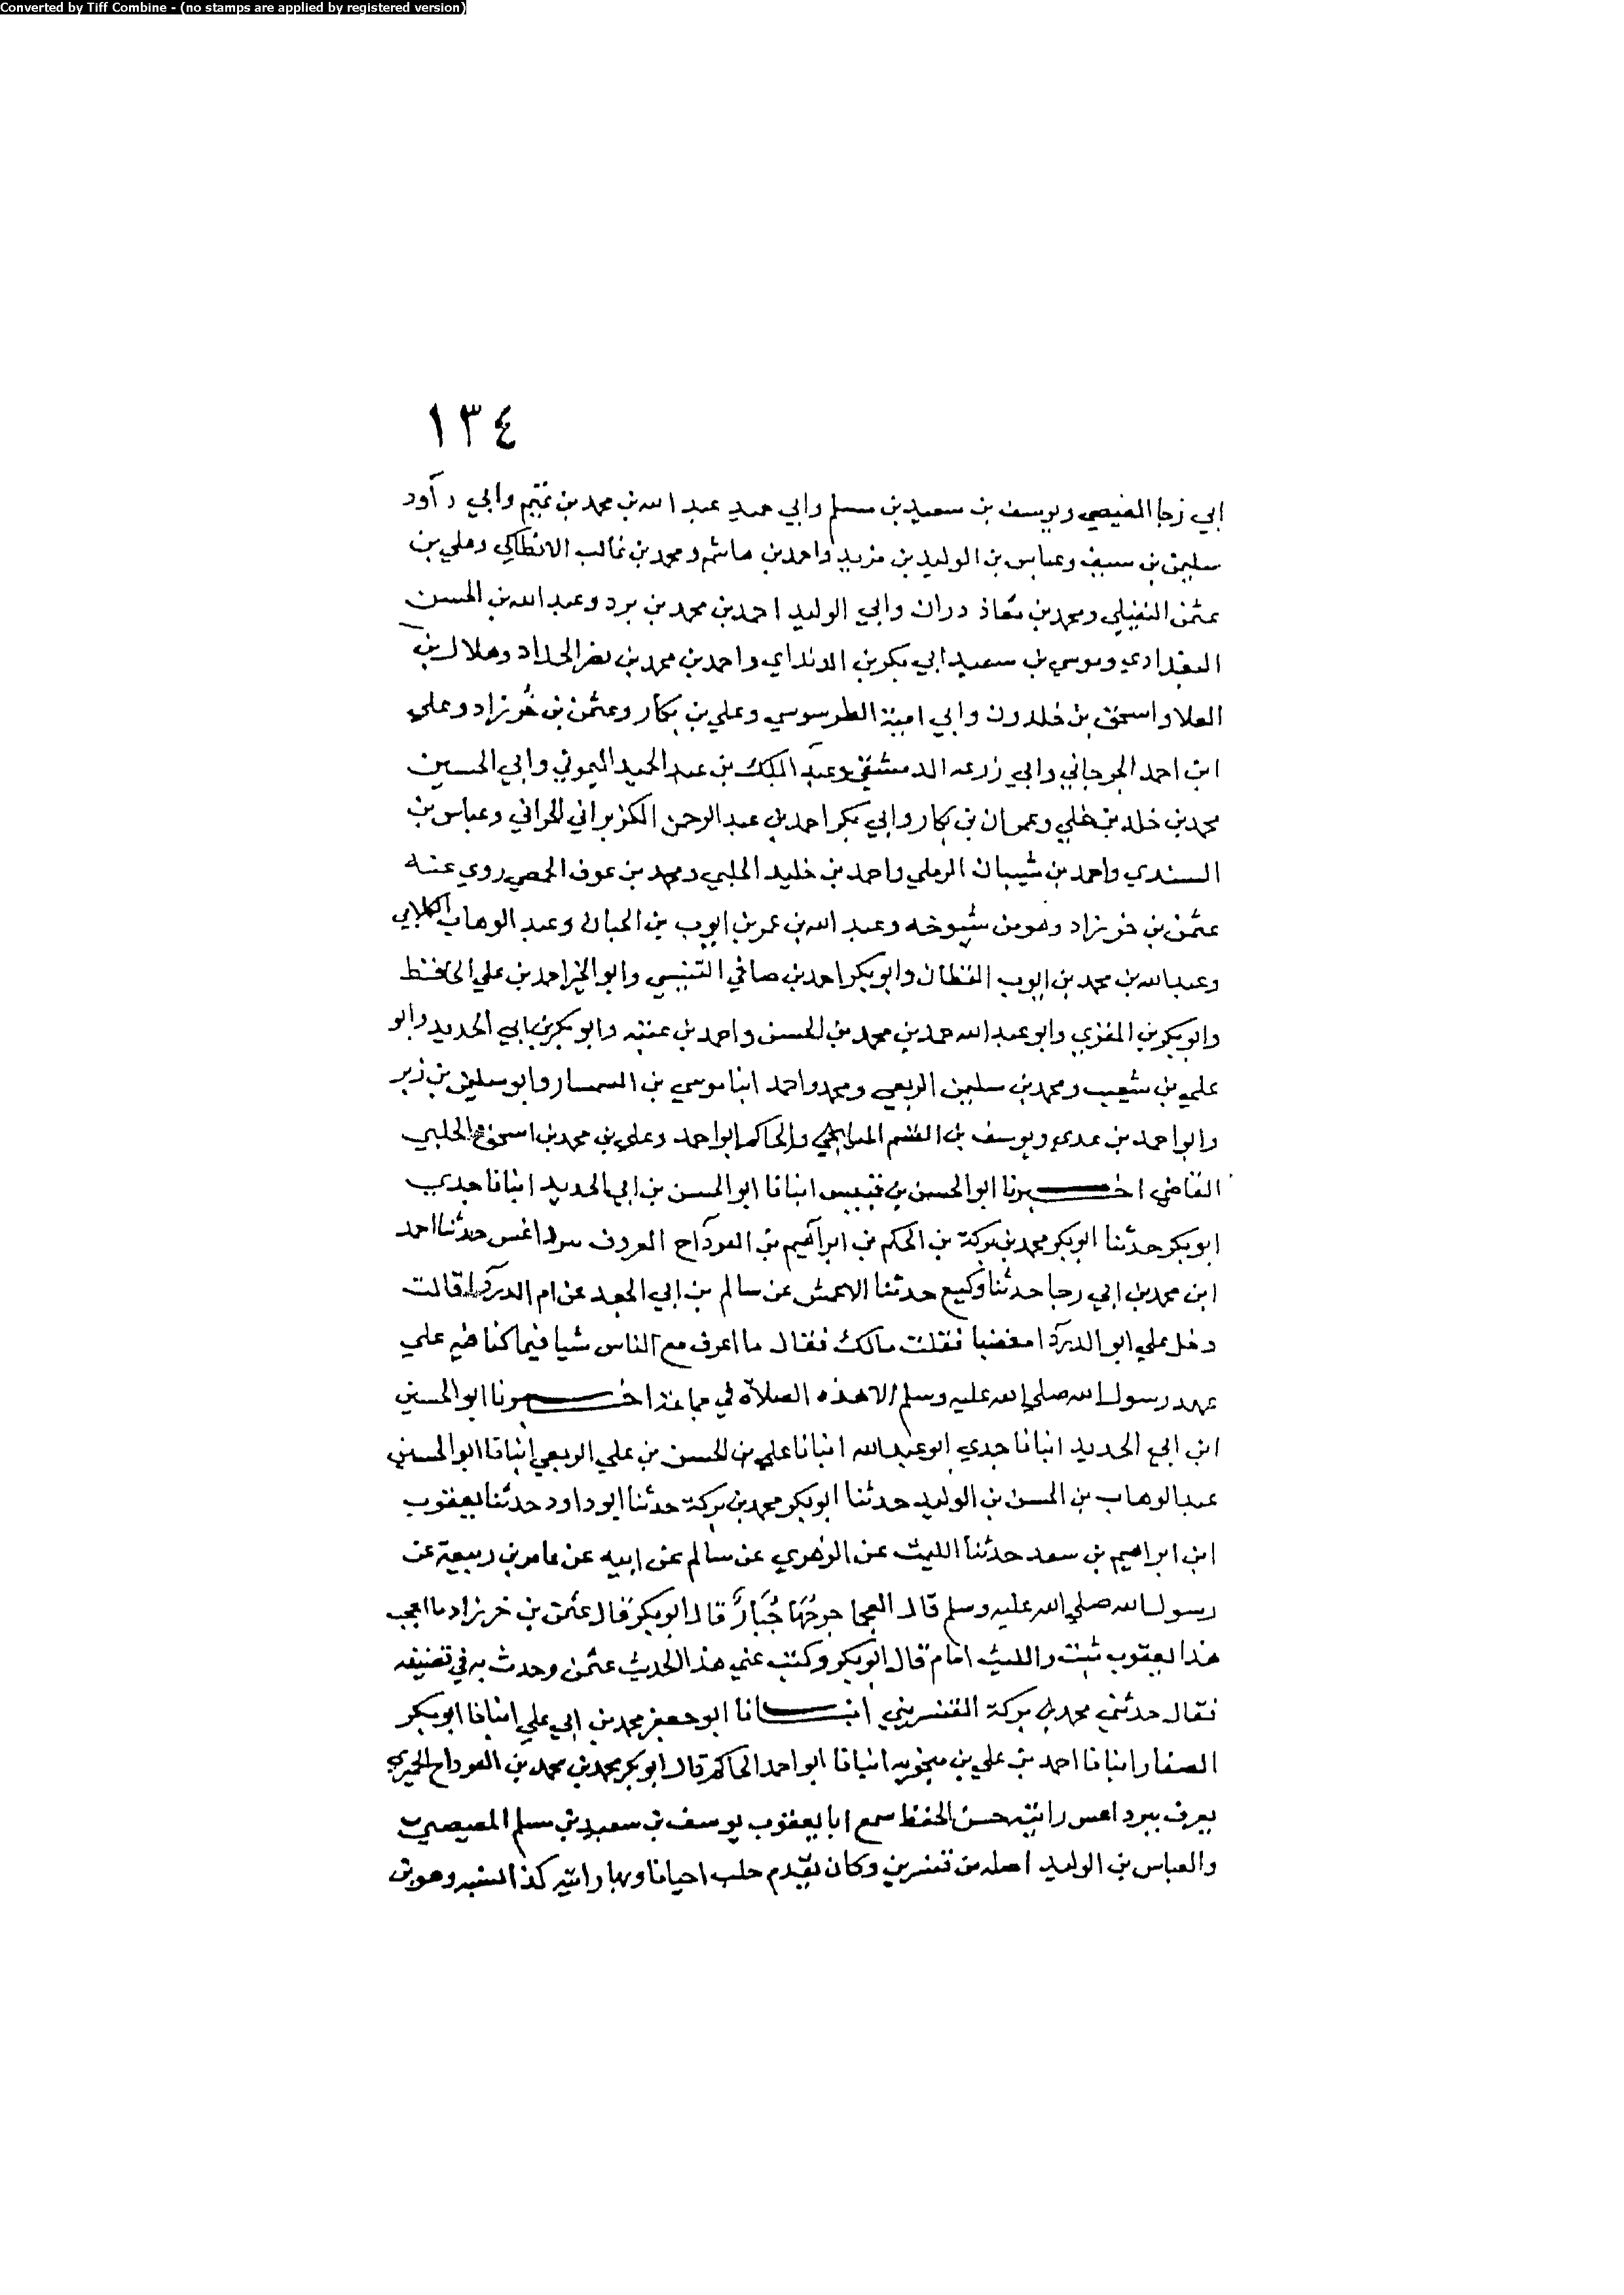 Converted by Tiff Combine - (no stamps are applied by registered version)
١٣٤
ابي رجا المصيصي ويوسف بن سعيد بن مسلم وابي حميد عبد الله بن محمد بن تميم وابي داود
سليمن بن سيف وعباس بن الوليد بن مزيد واحمد بن هاشم ومحمد بن غالب الانطاكي وعلي بن
عثمن النفيلي ومحمد بن معاذ دران وابي الوليد احمد بن محمد بن برد وعبد الله بن الحسن
البغدادي وموسي بن سعيد ابي بكر بن الدنداي واحمد بن محمد بن نصر الحداد وهلال بن
العلا واسحق بن خلدون وابي امية الطرسوسي وعلي بن بكار وعثمن بن خُرزاد وعلي
ابن احمد الجرجاني وابي زرعه الدمشقي وعبد الملك بن عبد الحميد الميموني وابي الحسين
محمد بن خلد بن خلي وعمران بن بكار وابي بكر احمد بن عبد الرحمن الكزبراني الحراني وعباس بن
السندي واحمد بن شيبان الرملي واحمد بن خليد الحلبي ومحمد بن عوف الحمصي روي عنه
عثمن بن خرزاد وهو من شيوخه وعبد الله بن عمر بن ايوب بن الحبان وعبد الوهاب الكلابي
وعبد الله بن محمد بن ايوب القطان وابو بكر احمد بن صافي التنيسي وابو الخير احمد بن علي الحافظ
وابو بكر بن المقري وابو عبد الله حمد بن محمد بن الحسن واحمد بن عتبه وابو بكر بن ابي الحديد وابو
علي بن شعيب ومحمد بن سليمن الربعي ومحمد واحمد ابنا موسي بن السمسار وابو سليمن بن زبر
وابو احمد بن عدي ويوسف بن القسم الميانجي والحاكم ابو احمد وعلي بن محمد بن اسحق الحلبي
القاضي اخبرنا ابو الحسن بن قبيس انبانا ابو الحسن بن ابي الحديد انبانا جدي
ابو بكر حدثنا ابو بكر محمد بن بركة بن الحكم بن ابراهيم بن الفرداج المعروف ببرداغس حدثنا احمد
ابن محمد بن ابي رجا حدثنا وكيع حدثنا الاعمش عن سالم بن ابي الجعد عن ام الدردا قالت
دخل علي ابو الدردا مغضبا فقلت مالك فقال ما اعرف مع الناس شيا فيما كنا فيه علي
عهد رسول الله صلي الله عليه وسلم الا هذه الصلاة في جماعة اخبرنا ابو الحسين
ابن ابي الحديد انبانا جدي ابو عبد الله انبانا علي بن الحسن بن علي الربعي انبانا ابو الحسين
عبد الوهاب بن الحسن بن الوليد حدثنا ابو بكر محمد بن بركة حدثنا ابو داود حدثنا يعقوب
ابن ابراهيم بن سعد حدثنا الليث عن الزهري عن سالم عن ابيه عن عامر بن ربيعة عن
رسول الله صلي الله عليه وسلم قال العجما جرحُهَا جُبَارٌ قال ابو بكر قال عثمن بن خرزاد ما اعجب
هذا يعقوب ثبت والليث امام قال ابو بكر وكتب عني هذا الحديث عثمن وحدث به في تصنيفه
فقال حدثني محمد بن بركة القنسريني انبانا ابو جعفر محمد بن ابي علي انبانا ابو بكر
الصفار انبانا احمد بن علي بن منجويه انبانا ابو احمد الحاكم قال ابو بكر محمد بن محمد بن الفرداج الحميري
يعرف ببرداعس رايته حسن الحفظ سمع ابا يعقوب يوسف بن سعيد بن مسلم المصيصي
والعباس بن الوليد اصله من قنسرين وكان يقدم حلب احيانا وبها رايته كذا نسبه وهو بن